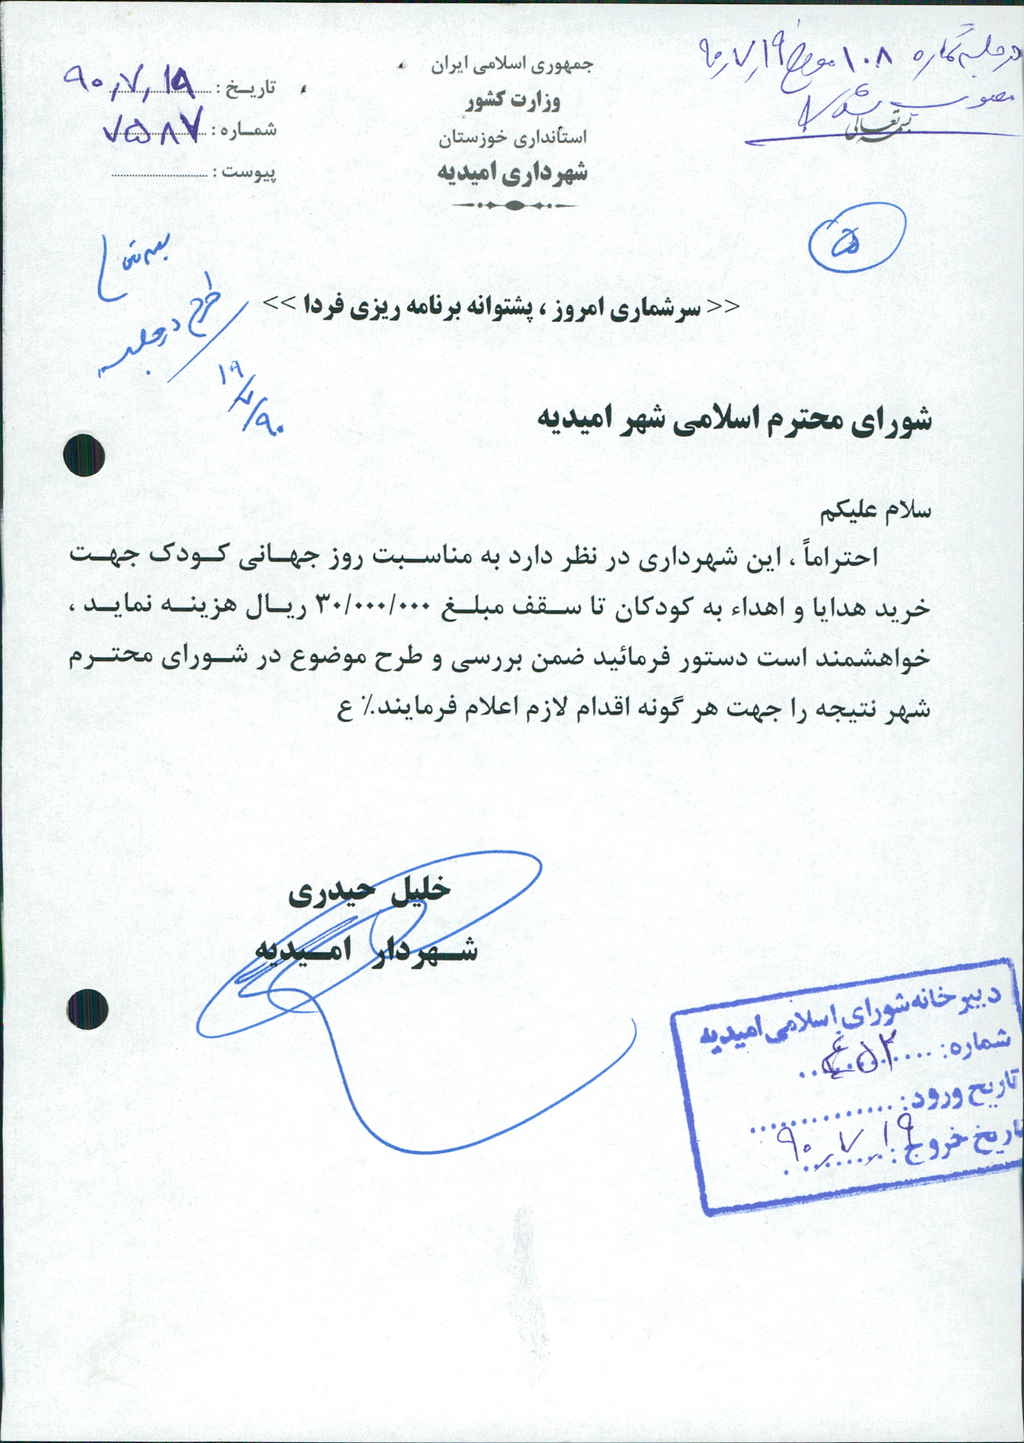 در جلسه شماره ۱۰۸ مورخ ۹۰٫۷٫۱۹
مصوب شد
بسمه تعالی
جمهوری اسلامی ایران
وزارت کشور
استانداری خوزستان
شهرداری امیدیه
تاریخ : ۹۰٫۷٫۱۹
شماره : ۷۵۸۷
پیوست :
۵
بسمه تعالی
طرح در جلسه
۹۰/۷/۱۹
<< سرشماری امروز ، پشتوانه برنامه ریزی فردا >>
شورای محترم اسلامی شهر امیدیه
سلام علیکم
احتراماً ، این شهرداری در نظر دارد به مناسبت روز جهانی کودک جهت
خرید هدایا و اهداء به کودکان تا سقف مبلغ ۳۰/۰۰۰/۰۰۰ ریال هزینه نماید ،
خواهشمند است دستور فرمائید ضمن بررسی و طرح موضوع در شورای محترم
شهر نتیجه را جهت هر گونه اقدام لازم اعلام فرمایند.٪ ع
خلیل حیدری
شهردار امیدیه
دبیرخانه شورای اسلامی امیدیه
شماره:
تاریخ ورود:
تاریخ خروج: ۹۰٫۷٫۱۹